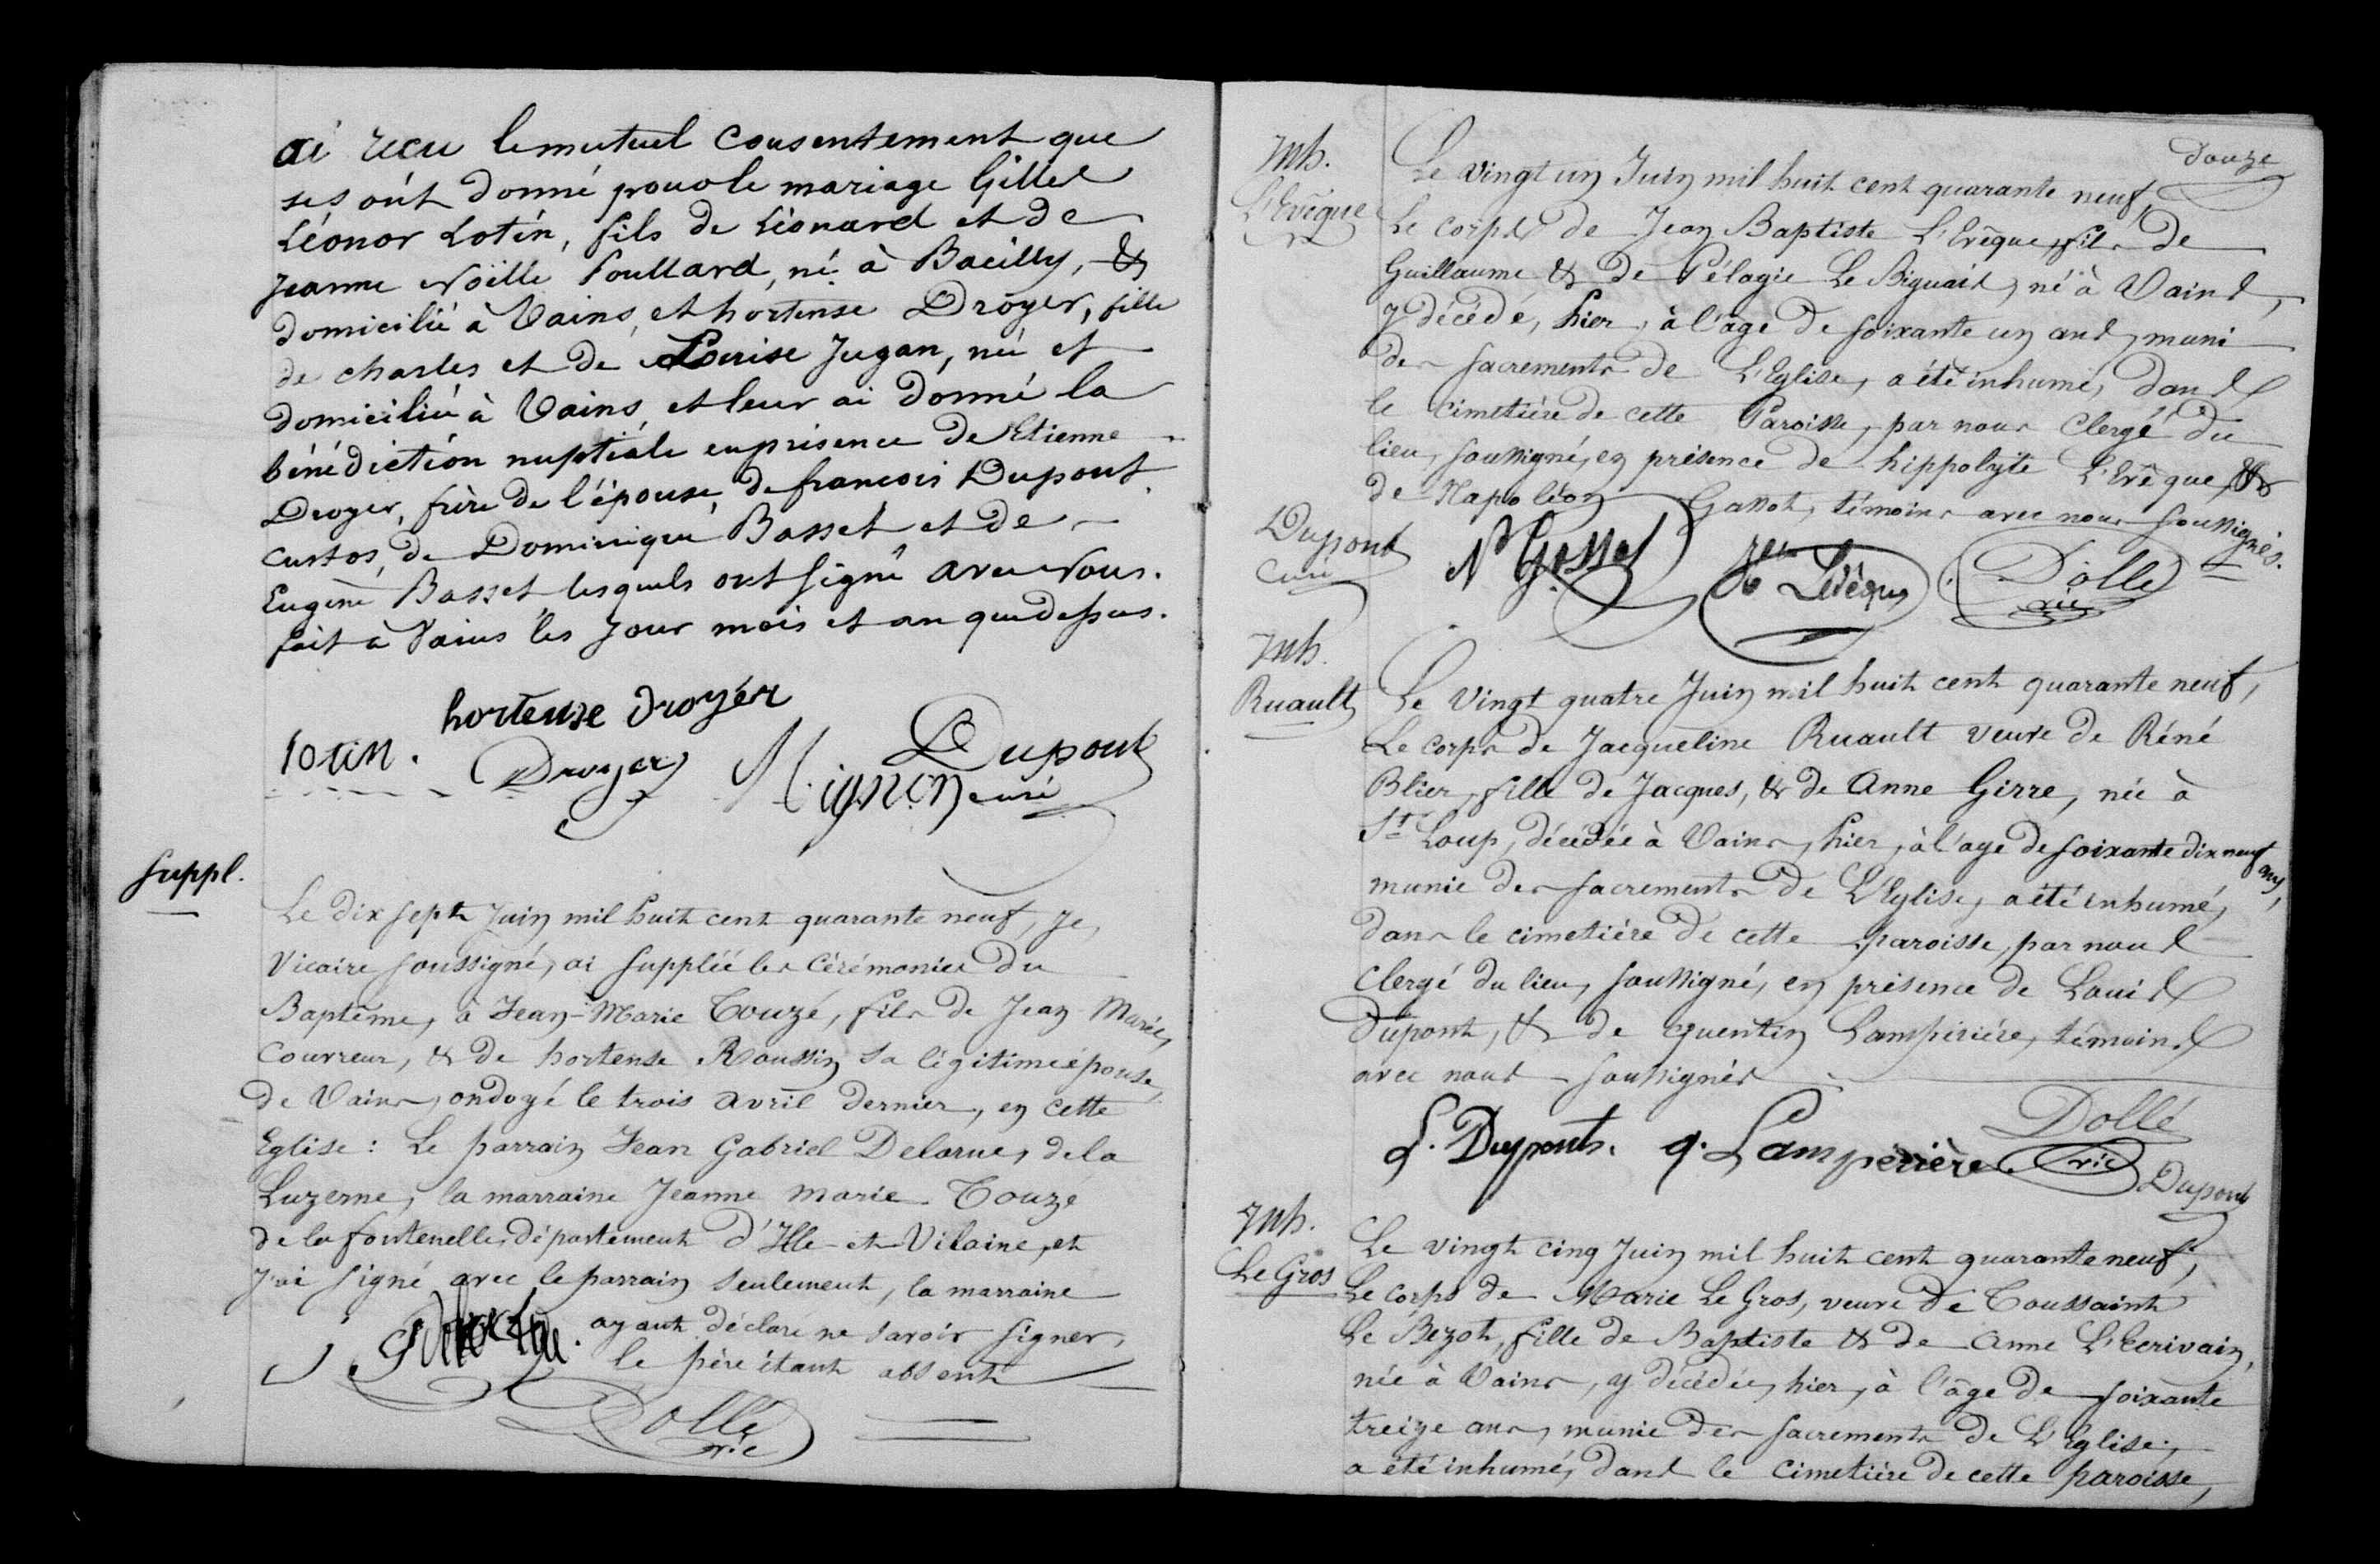 ai recu le mutuel consentement que
se sont donné pour le mariage Gilles
Léonor Lotin, fils de Léonard et de
Jeanne Noëlle Poullard, né à Bacilly, &
domicilié à Vains, et hortense Droyer, fille
de charles et de Louise Jugan, née et
domiciliée à Vains, et leur ai donné la
bénédiction nuptiale en présence de Etienne
Droyer, frère de l'épouse, de francois Dupont
custos, de Dominique Basset et de
Eugene Basset lesquels ont signé avec Nous.
fait à Vains les jour mois et an que dessus.
hortense droyér
lotin. Droyer Mignon Dupont
curé
Suppl.
Le dix sept Juin mil huit cent quarante neuf, je,
Vicaire soussigné, ai suppléé les cérémonies du
Baptême, à Jean-Marie Touzé, fils de Jean Marie,
Couvreur, & de hortense Roussin sa légitime épouse,
de Vains, ondoyé le trois avril dernier, en cette
Eglise : Le parrain Jean Gabriel Delarue, de la
Luzerne, la marraine Jeanne marie Touzé
de la fontenelle, département d'Ille-et-Vilaine, et
j'ai signé avec le parrain seulement, la marraine
ayant déclaré ne savoir signer,
le père étant absent
Dollé
vic
douze
Inh.
L'Evêque
Le vingt un Juin mil huit cent quarante neuf,
Le corps de Jean Baptiste L'Evêque, fils de
Guillaume & de Pélagie Le Biguait, né à Vains,
y décédé, hier, à l'age de soixante un ans, muni
des sacrements de L'Eglise, a été inhumé, dans
le cimetière de cette Paroisse, par nous Clergé du
lieu, soussigné, en présence de hippolyte L'Evêque, &
de Napoléon Gassot, témoins avec nous soussignés.
Dupont
Curé
N Gosset Levéque Dollé
vic
Inh.
Ruault
Le vingt quatre Juin mil huit cent quarante neuf,
Le corps de Jacqueline Ruault veuve de Réné
Blier, fille de Jacques, & de Anne Girre, née à
St Loup, décédée à Vains, hier, à l'age de soixante dix neuf ans,
munie des sacrements de L'Eglise, a été inhumé,
dans le cimetière de cette paroisse, par nous
Clergé du lieu, soussigné, en présence de Louis
Dupont, & de quentin Lampérière, témoins
avec nous soussignés
L. Duponts. q. Lampérière Dollé
vic
Dupont
Inh.
Le Gros
Le vingt cinq Juin mil huit cent quarante neuf,
Le corps de Marie Le Gros, veuve de Toussaint
Le Bezot, fille de Baptiste & de Anne L'Ecrivain,
née à Vains, y décédée, hier, à l'âge de soixante
treize ans, munie des sacrements de L'Eglise,
a été inhumé, dans le cimetière de cette paroisse,